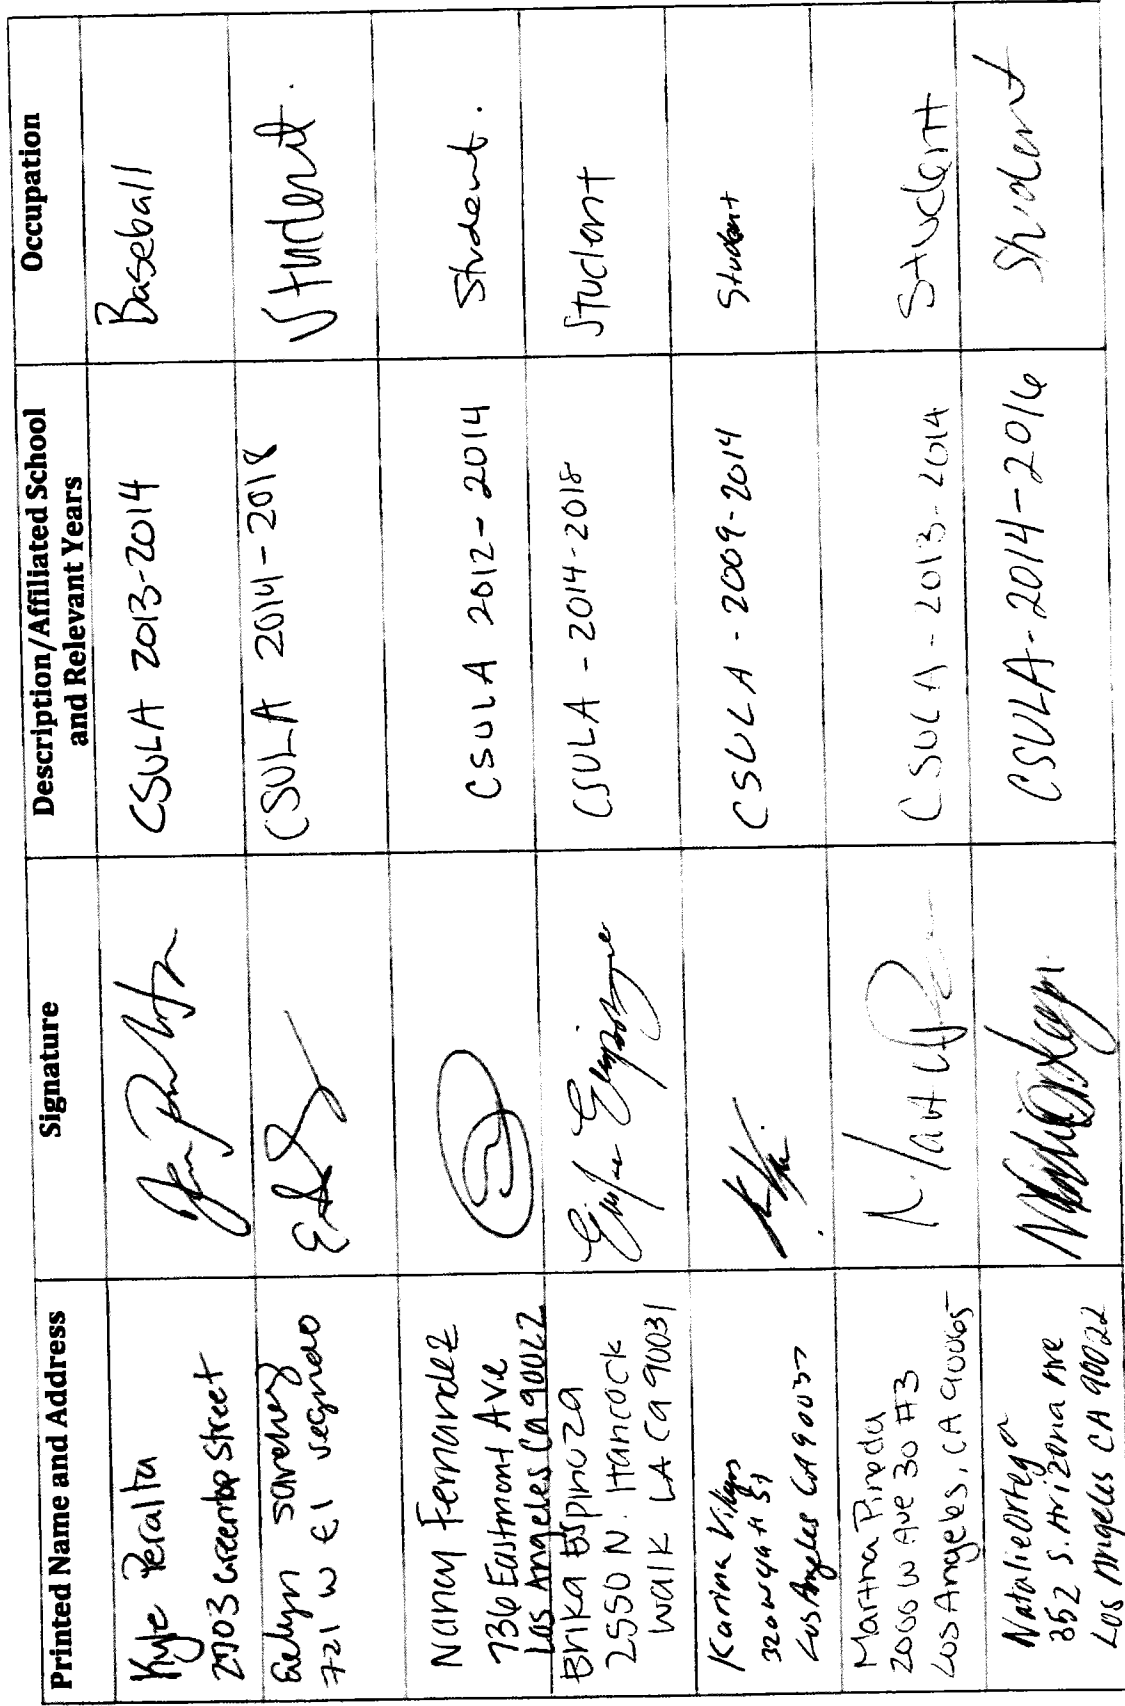 Printed Name and Address
Signature
Description/Affiliated School
and Relevant Years
Occupation
Kyle Peralta
2703 Greentop Street
CSULA 2013-2014
Baseball
Evelyn Sanchez
721 W El
CSULA 2014-2018
Student.
Nancy Fernandez
736 Eastmont Ave
Los Angeles Ca 90022
CSULA 2012-2014
Student.
Erika Espinoza
2550 N. Hancock
Walk LA Ca 90031
CSULA - 2014-2018
Student
Karina
St
Los Angeles CA 90037
CSULA - 2009-2014
Student
Martha Pineda
2006 W Ave 30 #3
Los Angeles, CA 90065
CSULA - 2013-2014
Student
Natalie Ortega
352 S. Arizona Ave
Los Angeles CA 90022
CSULA-2014-2016
Student